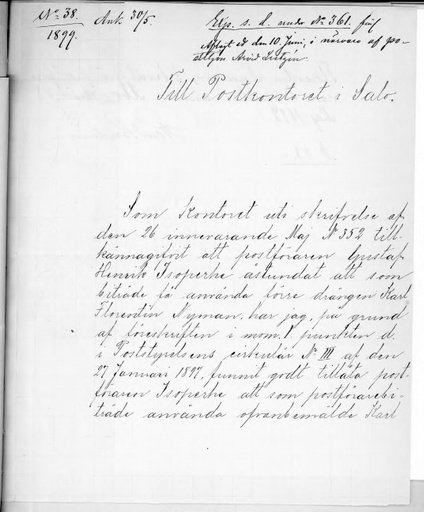 No 38.
1899.
Ank. 30/5.
Exp. s. d. under No 361.
Aflagt ed den 10 Juni, i närvaro af po-
Arvid
Till Postkontoret i Salo.
Som Kontoret uti skrifvelse af
den 26 innevarande Maj No 352 till-
kännagifvit att postföraren Gustaf
Henrik Isoperhe åstundat att som
biträde få använda förre drängen Karl
Florentin Nyman, har jag, på grund
af föreskriften i mom. 1 punkten d.
i Poststyrelsens cirkulär No III af den
27 Januari 1897, funnit godt tillåta post-
föraren Isoperhe att som postförarebi-
träde använda ofvanbemälde Karl